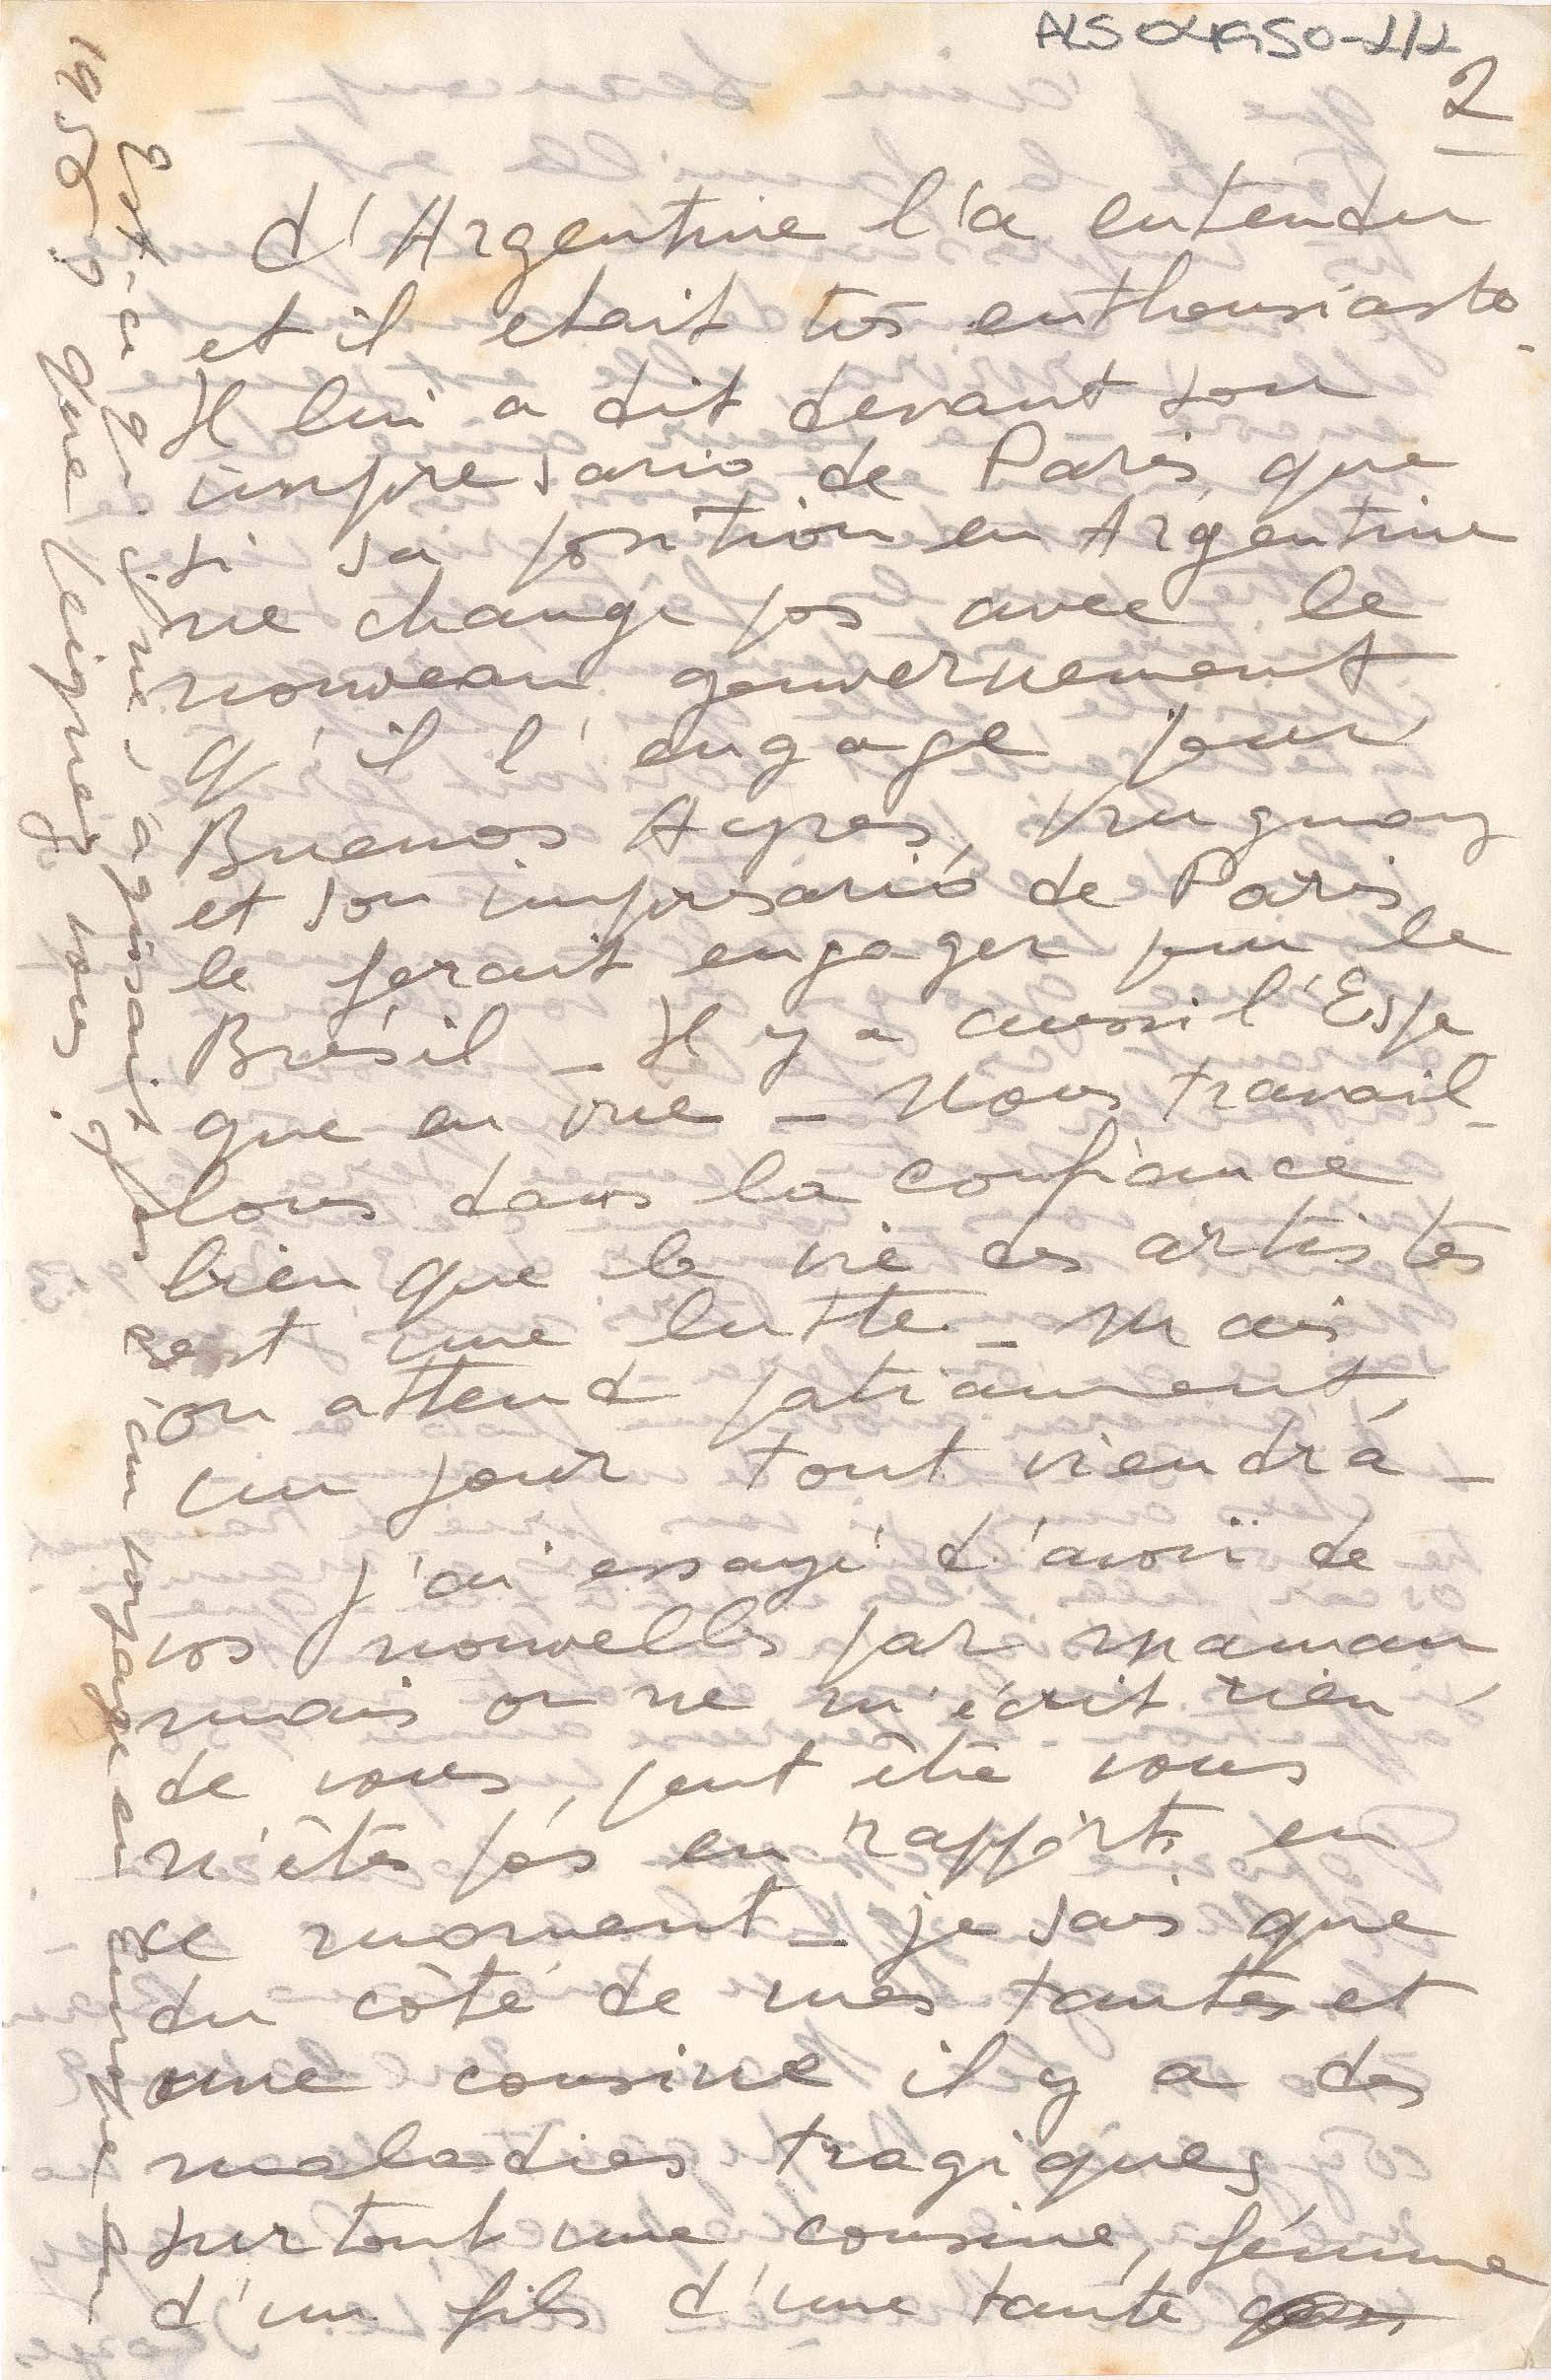 ALS04K50-2/2
2
d'Argentine l'a entendu
et il etait très enthousiaste.
Il lui a dit devant son
impresario de Paris, que
si sa position en Argentine
ne change pas avec le
nouveau gouvernement
q'il l'engage pour
Buenos Ayres, Uruguay
et son impresario de Paris
le ferait engager pour le
Brésil _ Il y a aussi l'Espa
gne en vue _ Nous travail_
lons dans la confiance
bien que la vie des artistes
est une lutte _ Mais
on attend patiament,
un jour tout viendrá _
J'ai essayé d'avoir de
vos nouvelles par maman,
mais on ne m'écrit rien
de vous, peut être vous
n'êtes pas en rapports en
ce moment _ je sais que
du côté de mes tantes et
une cousine il y a des
maladies tragiques
surtout une cousine, fémme
d'un fils d'une tante
Est-ce qu. ne faisait pas un voyage en Europe en
1950? que ceignez vous.